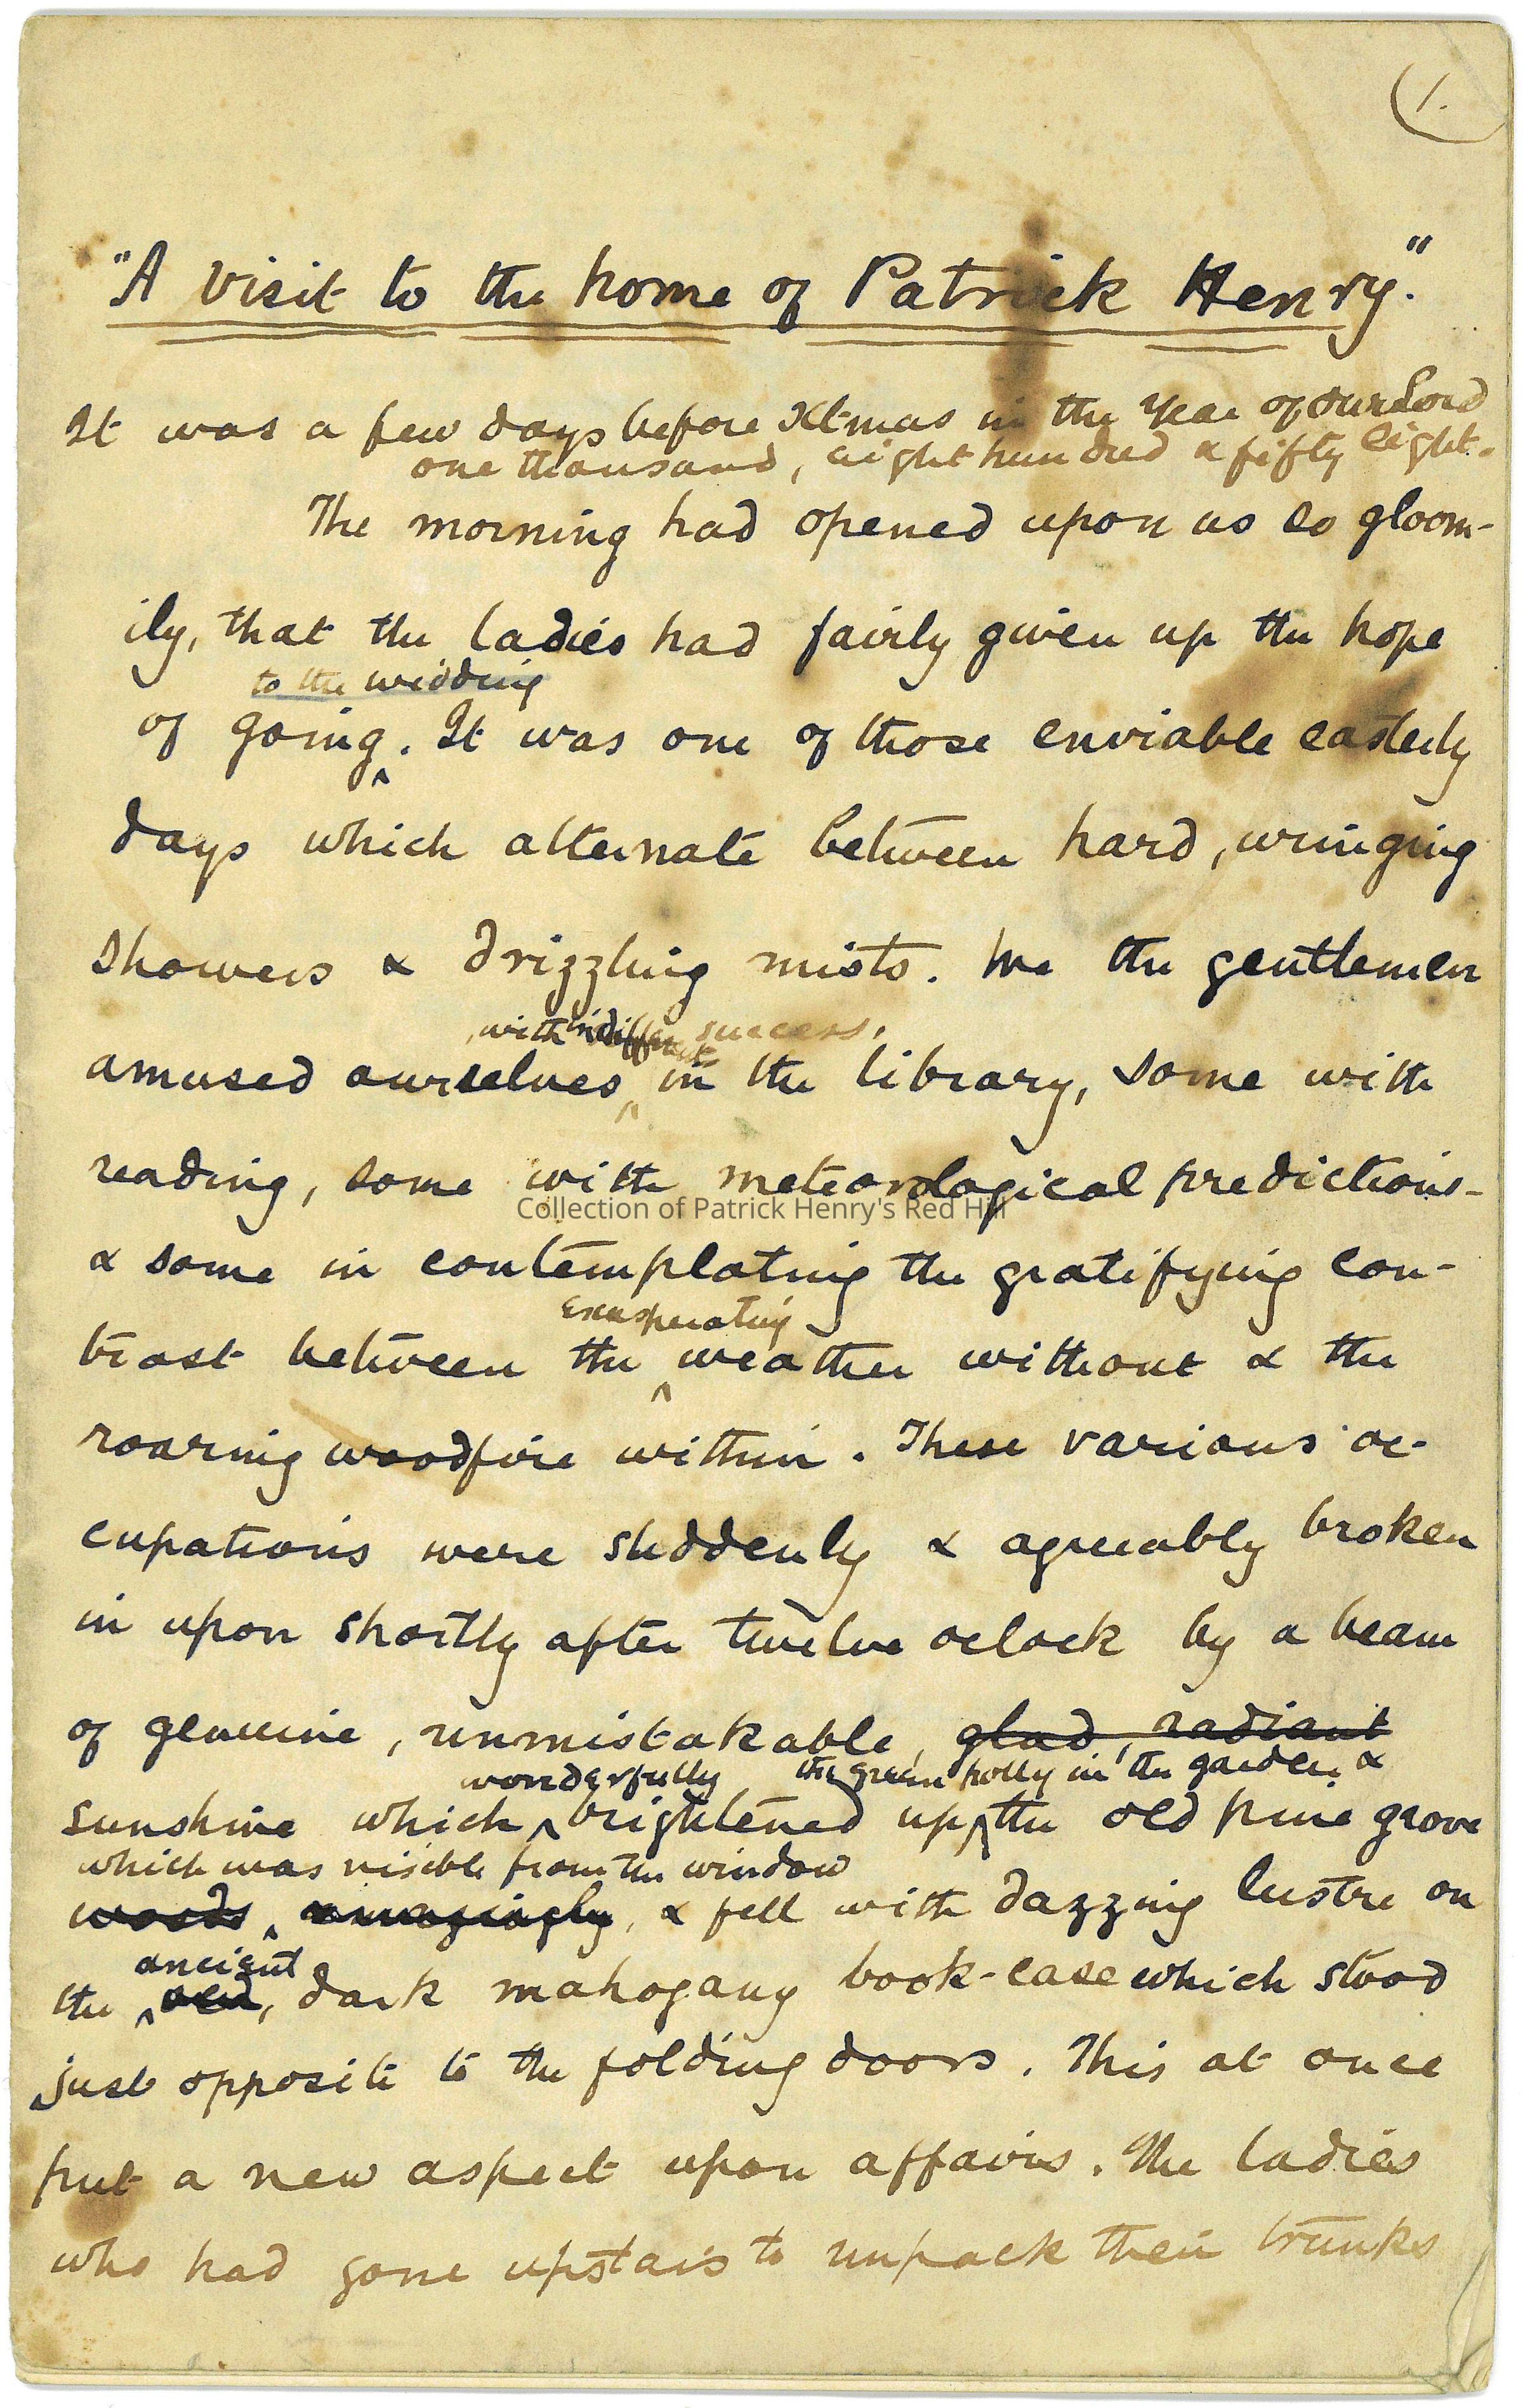 (1.
"A visit to the home of Patrick Henry."
It was a few days before Xtmas in the Year of our Lord
one thousand, eight hundred & fifty eight.
The morning had opened upon us so gloom-
ily, that the ladies had fairly given up the hope
to the wedding
of going. It was one of those enviable easterly
days which alternate between hard, wringing
showers & drizzling mists. We the gentlemen
, with indifferent success,
amused ourselves in the library, some with
reading, some with meteorological predictions-
Collection of Patrick Henry's Red Hill
& some in contemplating the gratifying con-
exasperating
trast between the weather without & the
roaring woodfire within. These various oc-
cupations were suddenly & agreeably broken
in upon shortly after twelve oclock by a beam
of genuine, unmistakable, glad, radiant
wonderfully the green holly in the garden &
sunshine which brightened up the old pine grove
which was visible from the window
woods, amazingly, & fell with dazzing lustre on
ancient
the old, dark mahogany book-case which stood
just opposite to the folding doors. This at once
put a new aspect upon affairs. The ladies
who had gone upstais to unpack their trunks